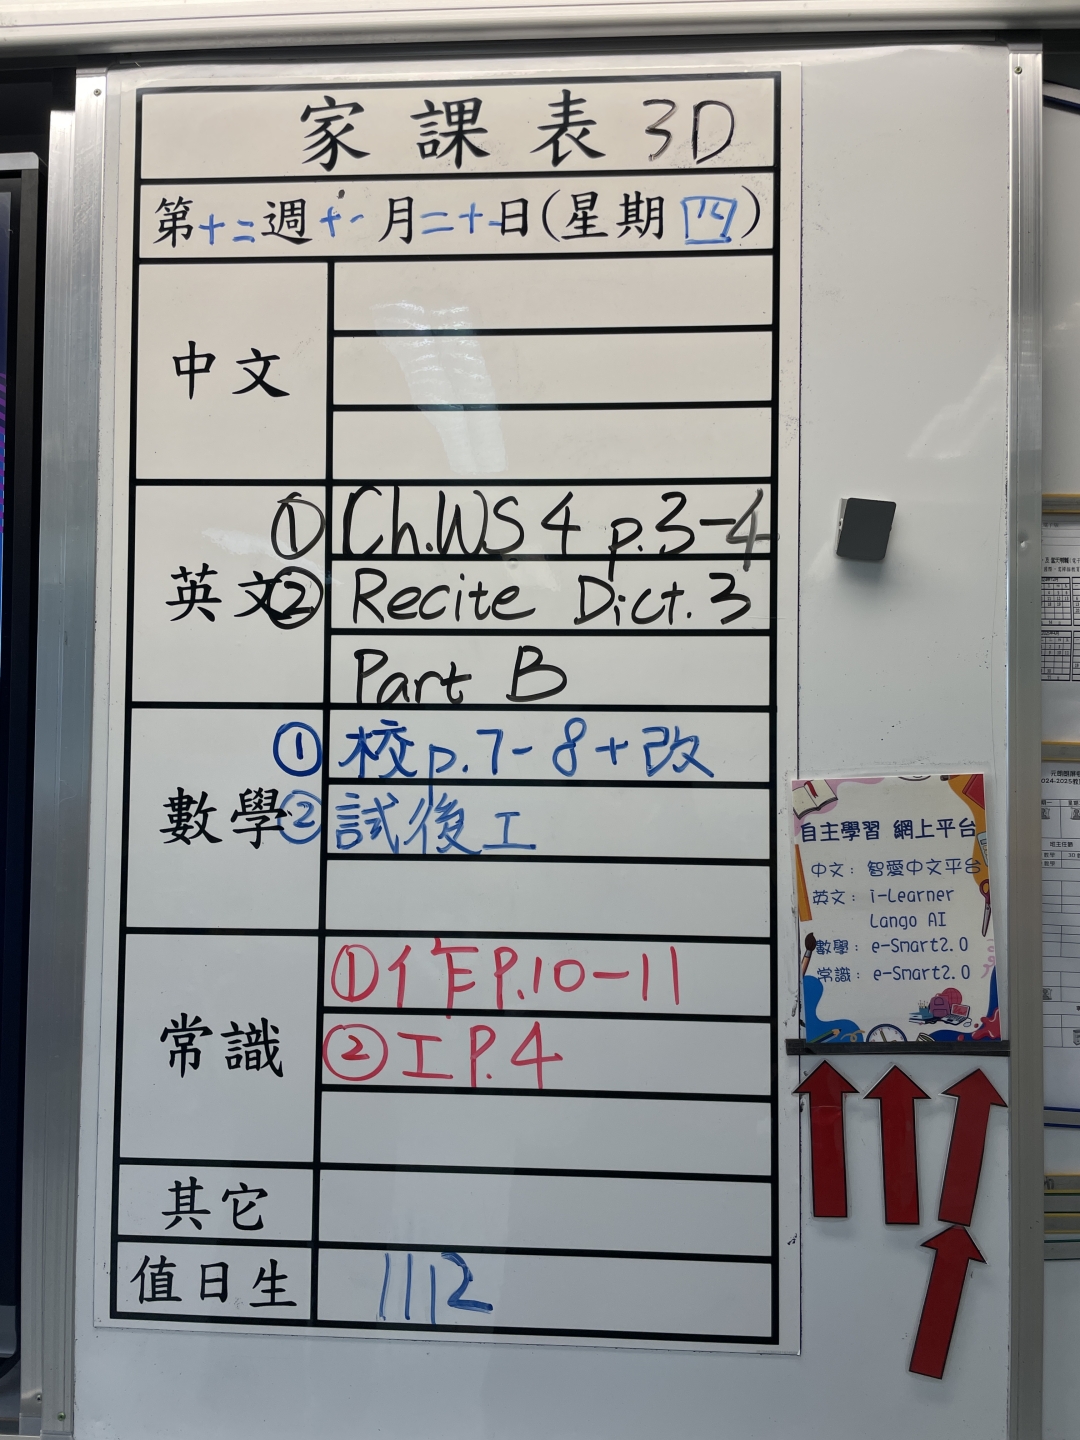 家課表 3D
第十二週十一月二十一日(星期四)
中文
英文
① Ch.WS 4 p.3-4
② Recite Dict.3
Part B
數學
① 校p.7-8+改
② 試後工
常識
① 作P.10-11
② 工P.4
其它
值日生
11,12
自主學習 網上平台
中文：智愛中文平台
英文：i-Learner
Lango AI
數學：e-Smart2.0
常識：e-Smart2.0